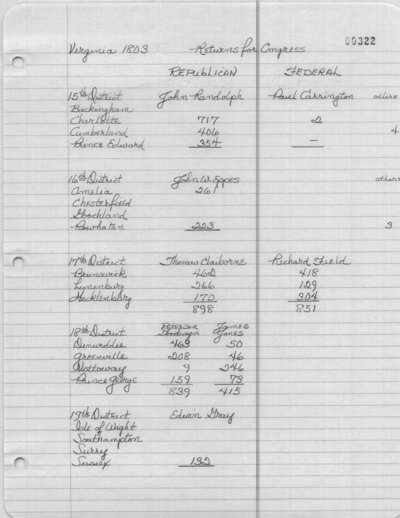 00322
Virginia 1803 Returns for Congress
REPUBLICAN FEDERAL
15th District John Randolph Paul Carrington others
Buckingham
Charlotte 717 2
Cumberland 406 — 4
Prince Edward 354 —
16th District John W. Eppes others
Amelia 261
Chesterfield
Goochland
Powhatan 223 3
17th District Thomas Claiborne Richard Field
Brunswick 462 418
Lunenburg 266 129
Mecklenburg 170 304
898 851
18th District Peterson Goodwyn James Jones
Dinwiddie 463 50
Greenville 208 46
Nottoway 9 246
Prince George 159 73
839 415
19th District Edwin Gray
Isle of Wight
Southampton
Surry
Sussex 132